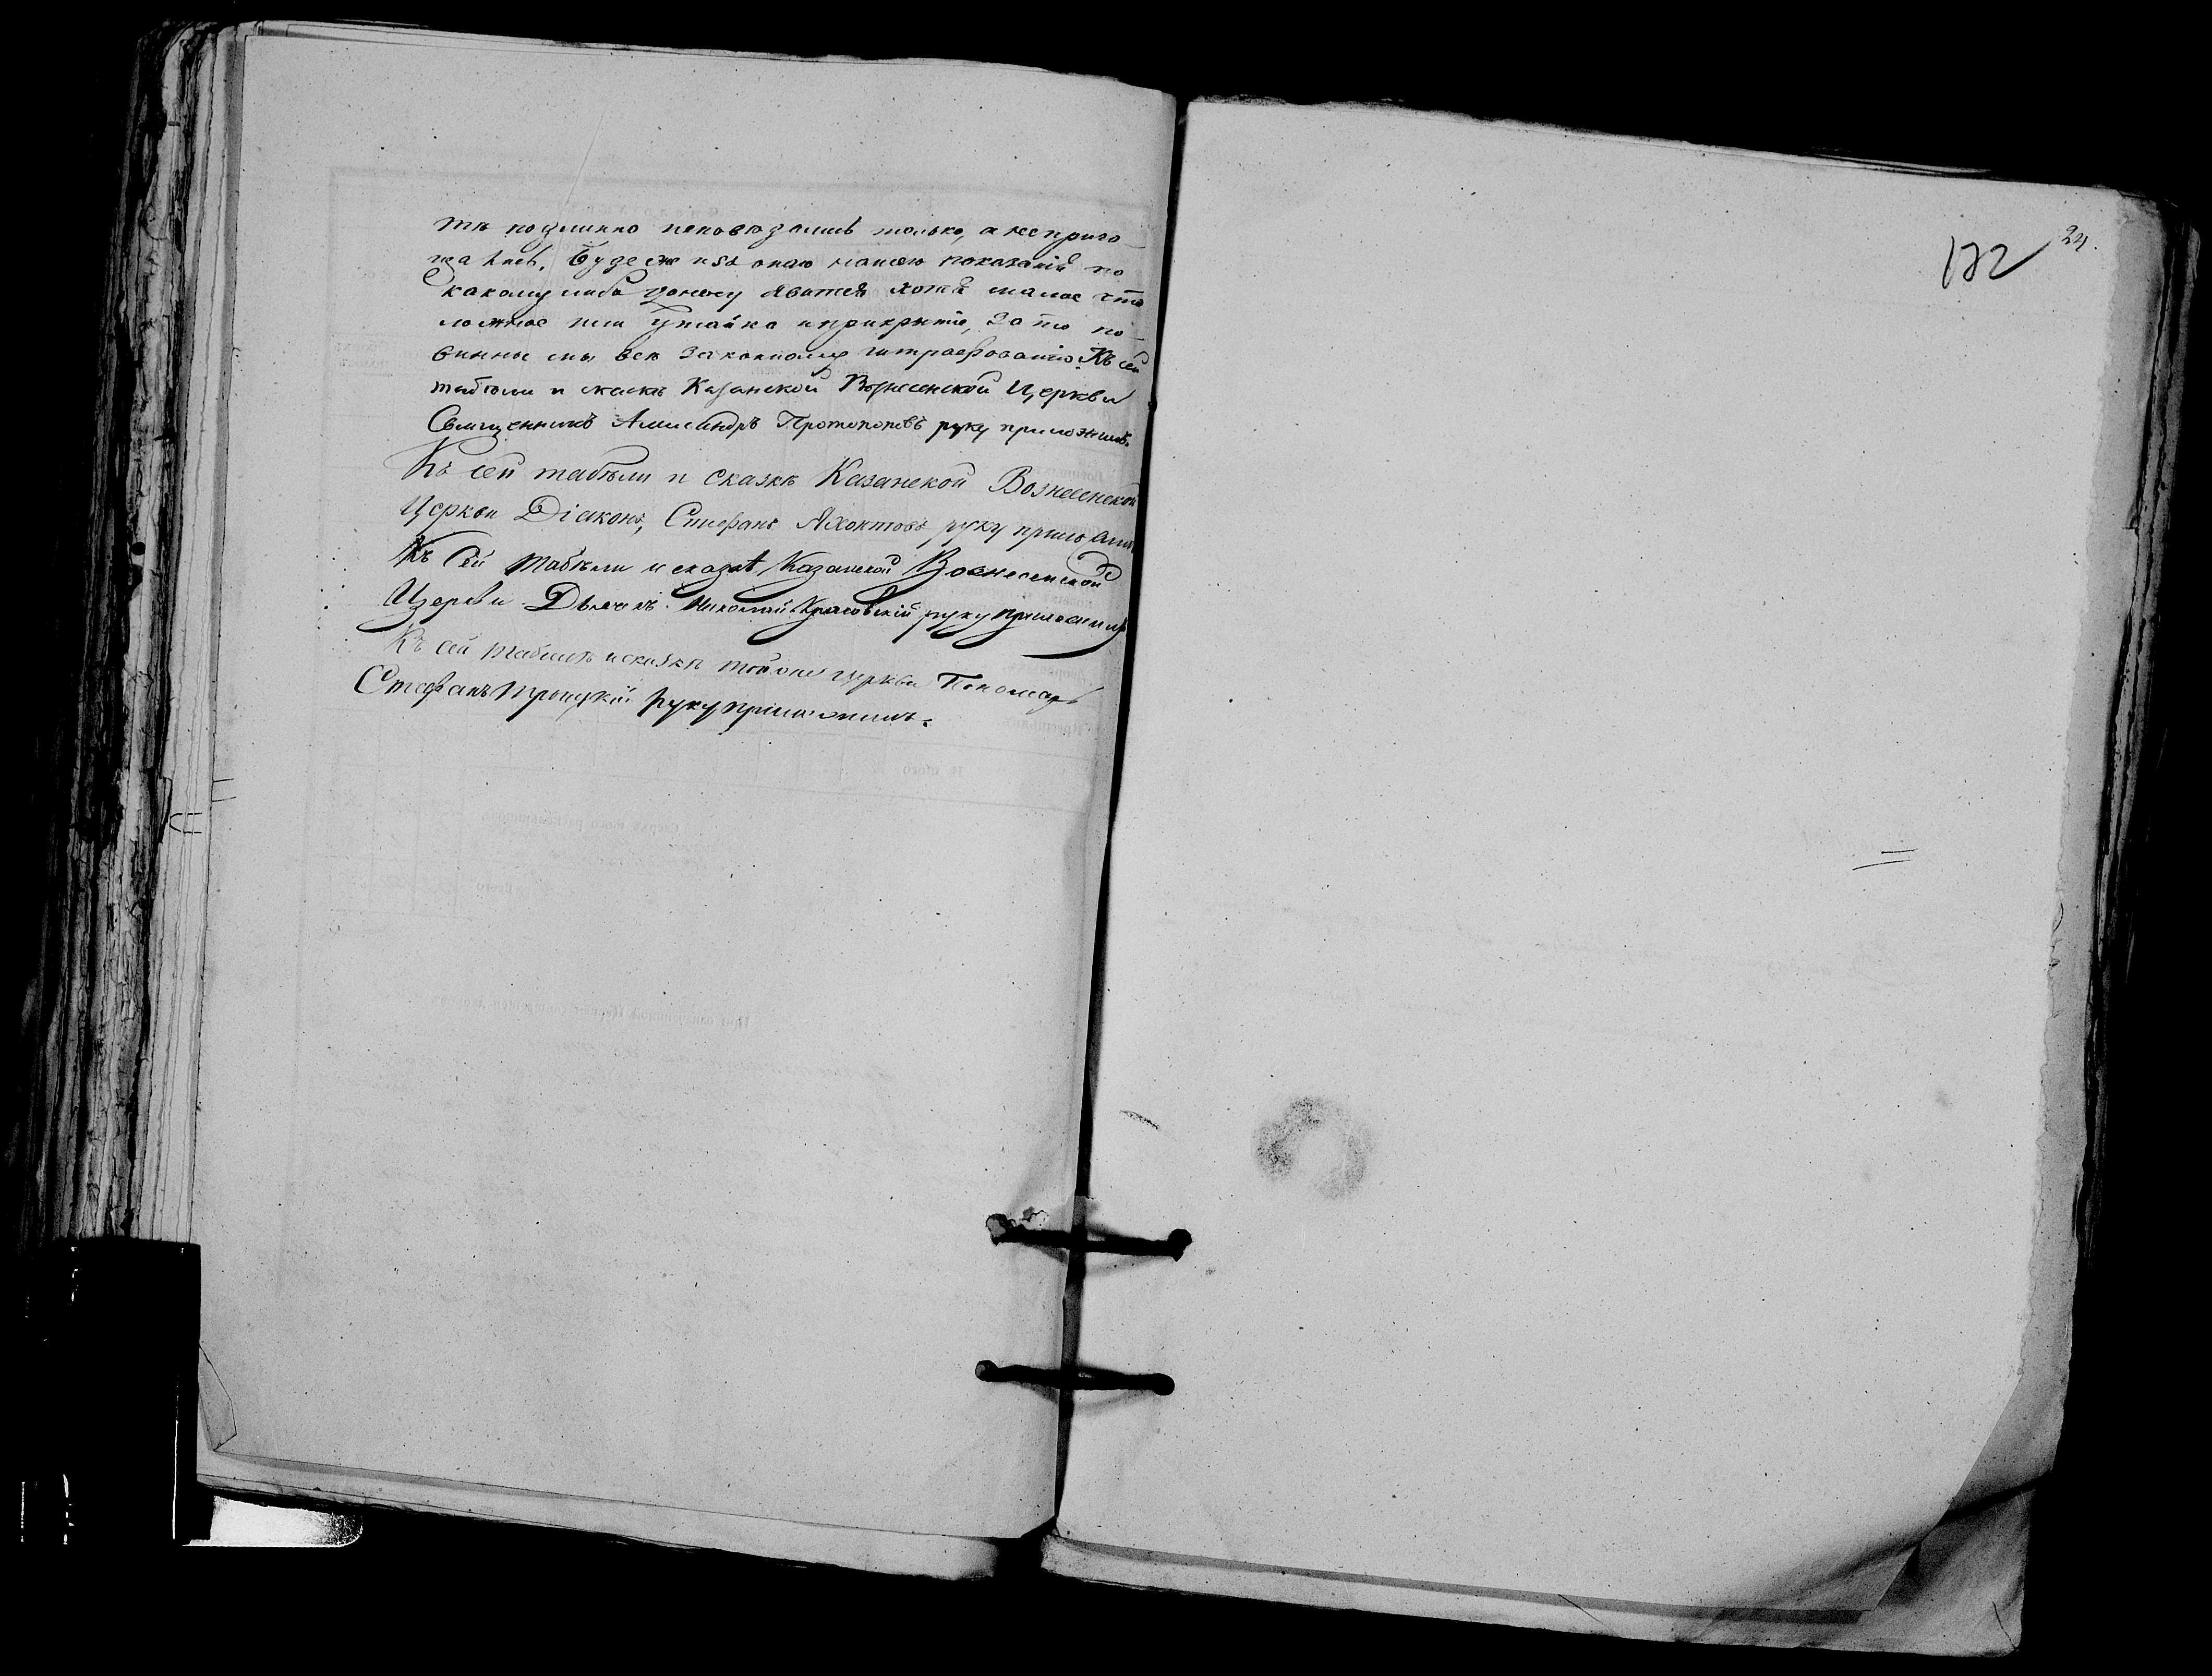 тѣ подлинно неповѣдались только, а непричо
щались. Будеже изъ онаго нашего показанія по
какому либо доносу явится хотя малое что
ложное или утайка и прикрытіе, за то по-
винны мы всѣ законному штрафованію. Къ сей
табѣли и скаскѣ Казанской Вознесенской Церкви
Священникъ Александръ Протопоповъ руку приложилъ.
Къ сей табѣли и сказкѣ Казанской Вознесенской
Церкви Діаконъ, Стефанъ руку приложилъ
Къ сей табѣли и сказкѣ Казанской Вознесенской
Церкви Дьячекъ Николай Красовскій руку приложилъ
Къ сей табели и сказкѣ тойже церкви Пономарь
Стефанъ Троицкій руку приложилъ.
172 24.